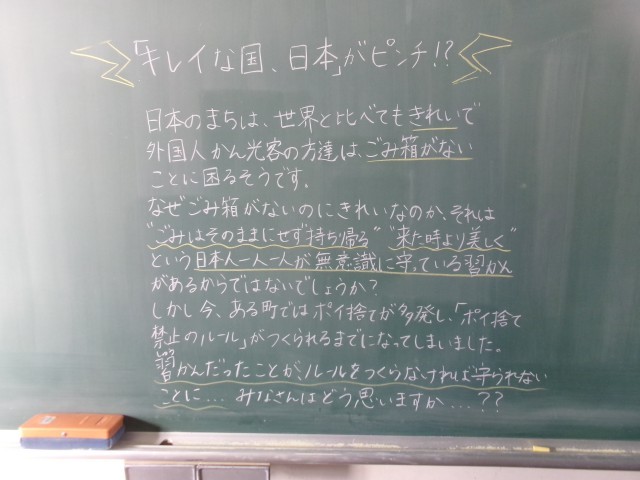 「キレイな国、日本」がピンチ!?
日本のまちは、世界と比べてもきれいで
外国人かん光客の方達は、ごみ箱がない
ことに困るそうです。
なぜごみ箱がないのにきれいなのか、それは
"ごみはそのままにせず持ち帰る" "来た時より美しく"
という日本人一人一人が無意識に守っている習かん
があるからではないでしょうか?
しかし今、ある町ではポイ捨てが多発し、「ポイ捨て
禁止のルール」がつくられるまでになってしまいました。
習かんだったことが、ルールをつくらなければ守られない
ことに... みなさんはどう思いますか...??